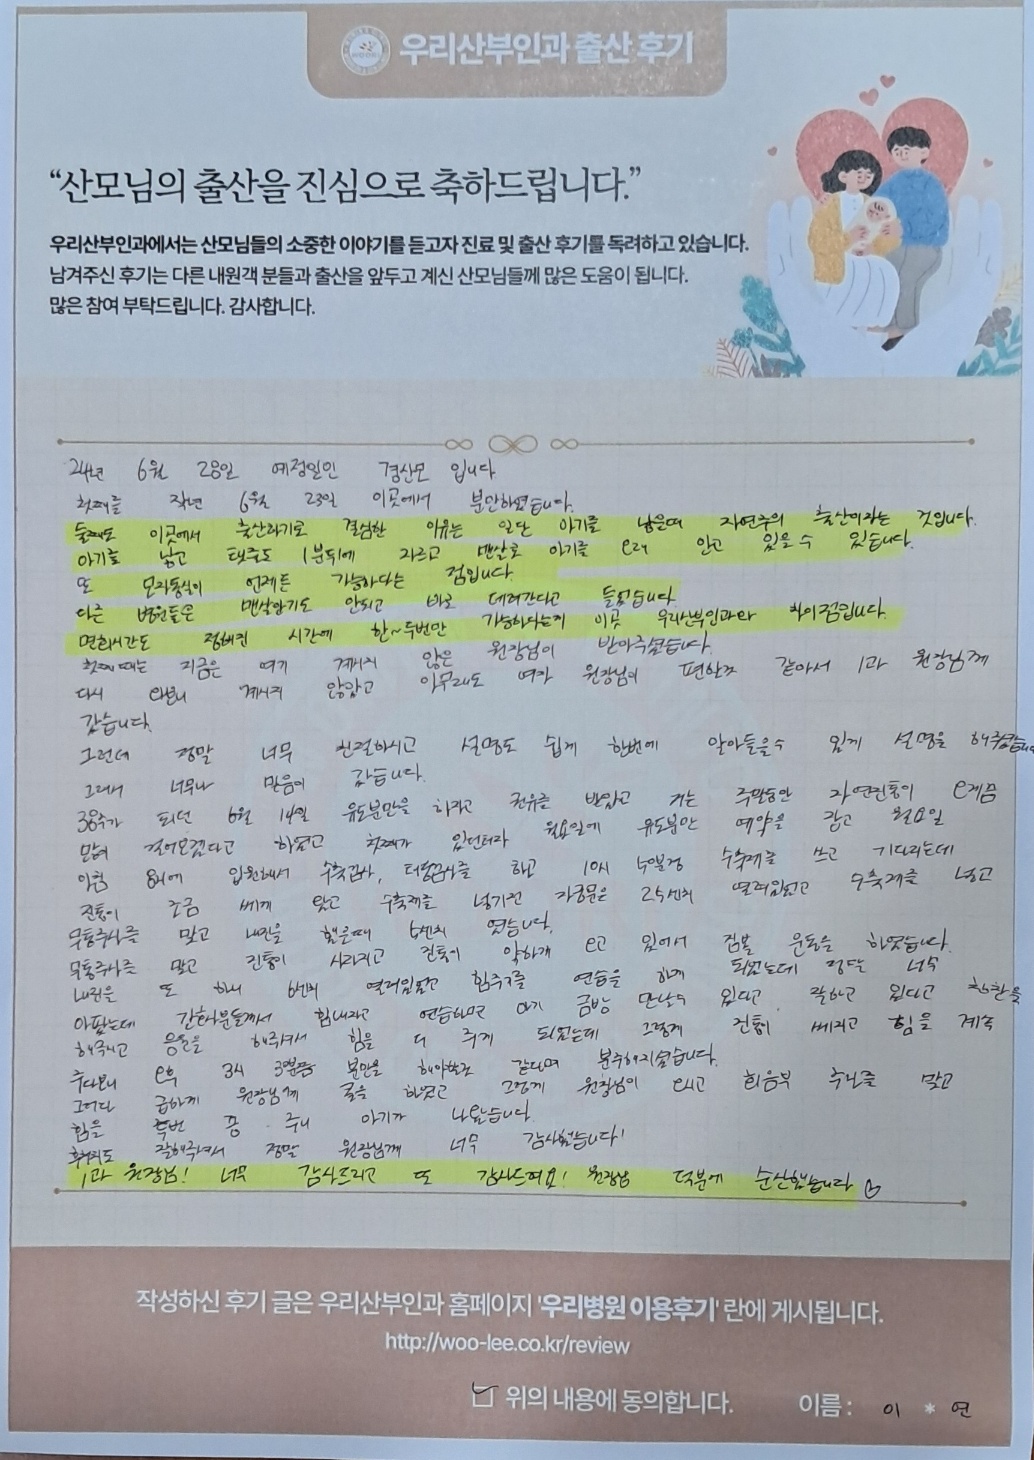 우리산부인과 출산 후기
“산모님의 출산을 진심으로 축하드립니다.”
우리산부인과에서는 산모님들의 소중한 이야기를 듣고자 진료 및 출산 후기를 독려하고 있습니다.
남겨주신 후기는 다른 내원객 분들과 출산을 앞두고 계신 산모님들께 많은 도움이 됩니다.
많은 참여 부탁드립니다. 감사합니다.
24년 6월 28일 예정일인 경산모 입니다
첫째를 작년 6월 23일 이곳에서 분만하였습니다.
둘째도 이곳에서 출산하기로 결심한 이유는 일단 아기를 낳을때 자연주의 출산이라는 것입니다.
아기를 낳고 탯줄도 1분뒤에 자르고 맨살로 아기를 오래 안고 있을수 있습니다.
또 모자동실이 언제든 가능하다는 점입니다.
다른 병원들은 맨살안기도 안되고 바로 데려간다고 들었습니다.
면회시간도 정해진 시간에 한~두번만 가능하다는게 이곳 우리산부인과와 차이점입니다.
첫째때는 지금은 여기 계시지 않은 원장님이 받아주셨습니다.
다시 와보니 계시지 않았고 아무래도 여자 원장님이 편한것 같아서 1과 원장님께
갔습니다.
그런데 정말 너무 친절하시고 설명도 쉽게 한번에 알아들을수 있게 설명을 해주셨습니다
그래서 너무나 믿음이 갔습니다.
38주가 되던 6월 14일 유도분만을 하자고 권유를 받았고 저는 주말동안 자연진통이 오게끔
많이 걸어오겠다고 하였고 첫째가 있던터라 월요일에 유도분만 예약을 잡고 월요일
아침 8시에 입원해서 수축검사, 태동검사를 하고 10시 수축제를 쓰고 기다리는데
진통이 조금 세게 왔고 수축제를 넣기전 자궁문은 2.5센치 열려있었고 수축제를 넣고
무통주사를 맞고 내진을 했을때 5센치 였습니다.
무통주사를 맞고 진통이 사라지고 진통이 약하게 오고 있어서 짐볼 운동을 하였습니다.
내진을 또 하니 6센치 열려있었고 힘주기를 연습을 하게 되었는데 정말 너무
아팠는데 간호사분들께서 힘내자고 연습하면 아기 금방 만날수 있다고 잘하고 있다고 칭찬을
해주시고 응원을 해주셔서 힘을 더 주게 되었는데 그렇게 진통이 세지고 힘을 계속
주다보니 오후 3시 분만을 해야할것 같다며 분주해지셨습니다.
그러다 급하게 원장님께 콜을 하였고 그렇게 원장님이 오시고 회음부 주사를 맞고
힘을 두번 쯤 주니 아기가 나왔습니다.
후처치도 잘해주셔서 정말 원장님께 너무 감사했습니다!
1과 원장님! 너무 감사드리고 또 감사드려요! 원장님 덕분에 순산했습니다
작성하신 후기 글은 우리산부인과 홈페이지 '우리병원 이용후기' 란에 게시됩니다.
http://woo-lee.co.kr/review
위의 내용에 동의합니다. 이름 : 이 * 연